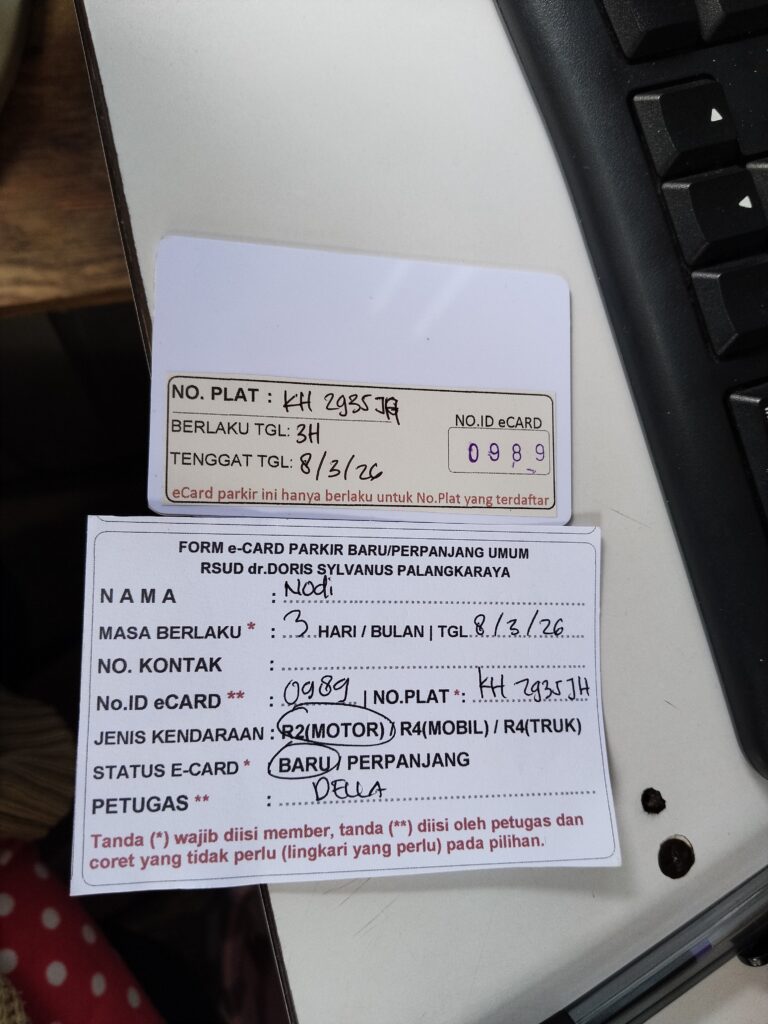 NO. PLAT : KH 2935 JH
NO.ID eCARD
BERLAKU TGL: 3H
0989
TENGGAT TGL: 8/3/26
eCard parkir ini hanya berlaku untuk No.Plat yang terdaftar
FORM e-CARD PARKIR BARU/PERPANJANG UMUM
RSUD dr.DORIS SYLVANUS PALANGKARAYA
N A M A : Nodi
MASA BERLAKU * : 3 HARI / BULAN | TGL 8/3/26
NO. KONTAK :
No.ID eCARD ** : 0989 | NO.PLAT *: KH 2935 JH
JENIS KENDARAAN : R2(MOTOR) / R4(MOBIL) / R4(TRUK)
STATUS E-CARD * : BARU / PERPANJANG
PETUGAS ** : DELLA
Tanda (*) wajib diisi member, tanda (**) diisi oleh petugas dan
coret yang tidak perlu (lingkari yang perlu) pada pilihan.